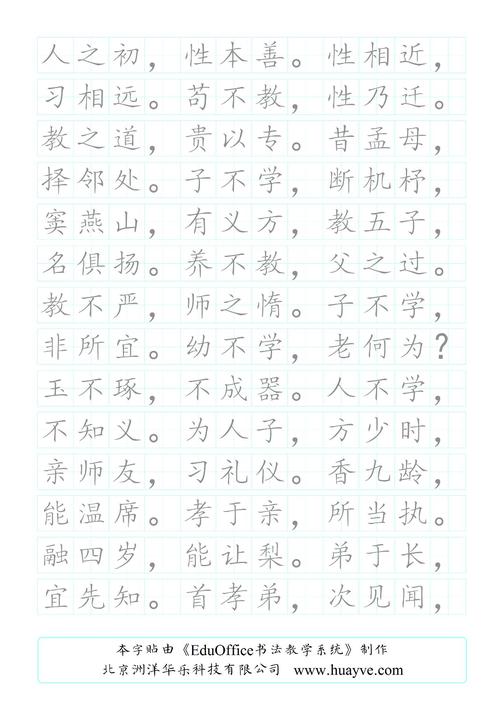 人之初，性本善。性相近，
习相远。苟不教，性乃迁。
教之道，贵以专。昔孟母，
择邻处。子不学，断机杼，
窦燕山，有义方，教五子，
名俱扬。养不教，父之过。
教不严，师之惰。子不学，
非所宜。幼不学，老何为？
玉不琢，不成器。人不学，
不知义。为人子，方少时，
亲师友，习礼仪。香九龄，
能温席。孝于亲，所当执。
融四岁，能让梨。弟于长，
宜先知。首孝弟，次见闻，
本字贴由《EduOffice书法教学系统》制作
北京洲洋华乐科技有限公司 www.huayve.com